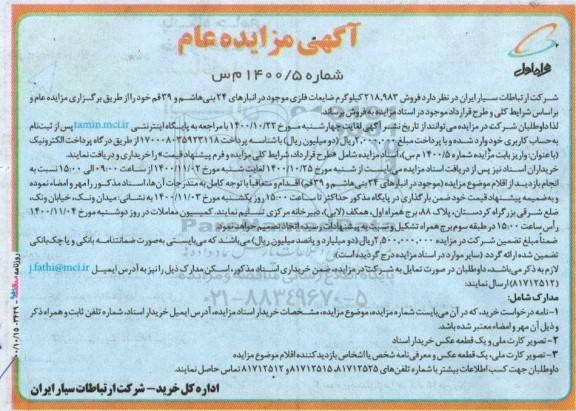 آگهی مزایده عام
شماره ۱۴۰۰/۵ م س
همراه اول
شرکت ارتباطات سیار ایران در نظر دارد فروش ۲۱۸،۹۸۳ کیلوگرم ضایعات فلزی موجود در انبارهای ۲۴ بنی هاشم و ۳۹ قم خود را از طریق برگزاری مزایده عام و
بر اساس شرایط کلی و طرح قرارداد موجود در اسناد مزایده به فروش برساند.
لذا داوطلبان شرکت در مزایده می‌توانند از تاریخ نشر آگهی لغایت چهارشنبه مورخ ۱۴۰۰/۱۰/۲۲ با مراجعه به پایگاه اینترنتی tamin.mci.ir پس از ثبت‌نام
به حساب کاربری خود وارد شده و با پرداخت مبلغ ۲،۰۰۰،۰۰۰ ریال (دو میلیون ریال) با شناسه پرداخت ۱۷۰۰۰۸۰۳۵۹۲۳۱۱۸ از طریق درگاه پرداخت الکترونیک
(با عنوان: واریز بابت مزایده شماره ۱۴۰۰/۵ م س)، اسناد مزایده شامل «طرح قرارداد، شرایط کلی مزایده و فرم پیشنهاد قیمت» را خریداری و دریافت نمایند.
خریداران اسناد نیز پس از دریافت اسناد مزایده می‌بایست از شنبه مورخ ۱۴۰۰/۱۰/۲۵ لغایت شنبه مورخ ۱۴۰۰/۱۱/۰۲ از ساعت ۰۹:۰۰ الی ۱۵:۰۰ نسبت به
انجام بازدید از اقلام موضوع مزایده (موجود در انبارهای ۲۴ بنی هاشم و ۳۹ قم) اقدام و متعاقباً با توجه کامل به مندرجات آن‌ها، اسناد مذکور را مهر و امضاء نموده
و به ضمیمه پیشنهاد قیمت خود ضمن بارگذاری در پایگاه مذکور حداکثر تا ساعت ۱۵:۰۰ روز یکشنبه مورخ ۱۴۰۰/۱۱/۰۳ به نشانی: میدان ونک، خیابان ونک،
ضلع شرقی بزرگراه کردستان، پلاک ۸۸، برج همراه اول، همکف (لابی)، دبیرخانه مرکزی تسلیم نمایند. کمیسیون معاملات در روز دوشنبه مورخ ۱۴۰۰/۱۱/۰۴
رأس ساعت ۱۵:۰۰ در طبقه سوم برج همراه تشکیل و نسبت به پیشنهادات رسیده اتخاذ تصمیم خواهد نمود.
ضمناً مبلغ تضمین شرکت در مزایده ۲،۵۰۰،۰۰۰،۰۰۰ ریال (دو میلیارد و پانصد میلیون ریال) می‌باشد که می‌بایستی به صورت ضمانتنامه بانکی و یا چک بانکی
تضمین شده ارائه گردد (سایر موارد در اسناد مزایده درج گردیده است).
لازم به ذکر می‌باشد، داوطلبان در صورت تمایل به شرکت در مزایده، ضمن خریداری اسناد مذکور، اسکن مدارک ذیل را نیز به آدرس ایمیل j.fathi@mci.ir
(۸۱۷۱۲۵۱۲) ارسال نمایند:
مدارک شامل:
۱- نامه درخواست خرید، که در آن می‌بایست شماره مزایده، موضوع مزایده، مشخصات خریدار اسناد مزایده، آدرس ایمیل خریدار اسناد، شماره تلفن ثابت و همراه ذکر
و ذیل آن مهر و امضاء معتبر شده باشد.
۲- تصویر کارت ملی و یک قطعه عکس خریدار اسناد
۳- تصویر کارت ملی، یک قطعه عکس و معرفی نامه شخص یا اشخاص بازدیدکننده اقلام موضوع مزایده
داوطلبان جهت کسب اطلاعات بیشتر با شماره تلفن‌های ۸۱۷۱۲۵۲۵، ۸۱۷۱۲۵۱۵ و ۸۱۷۱۲۵۱۲ تماس حاصل نمایند.
اداره کل خرید - شرکت ارتباطات سیار ایران
۰۲۱-۸۸۳۴۹۶۷۰-۵